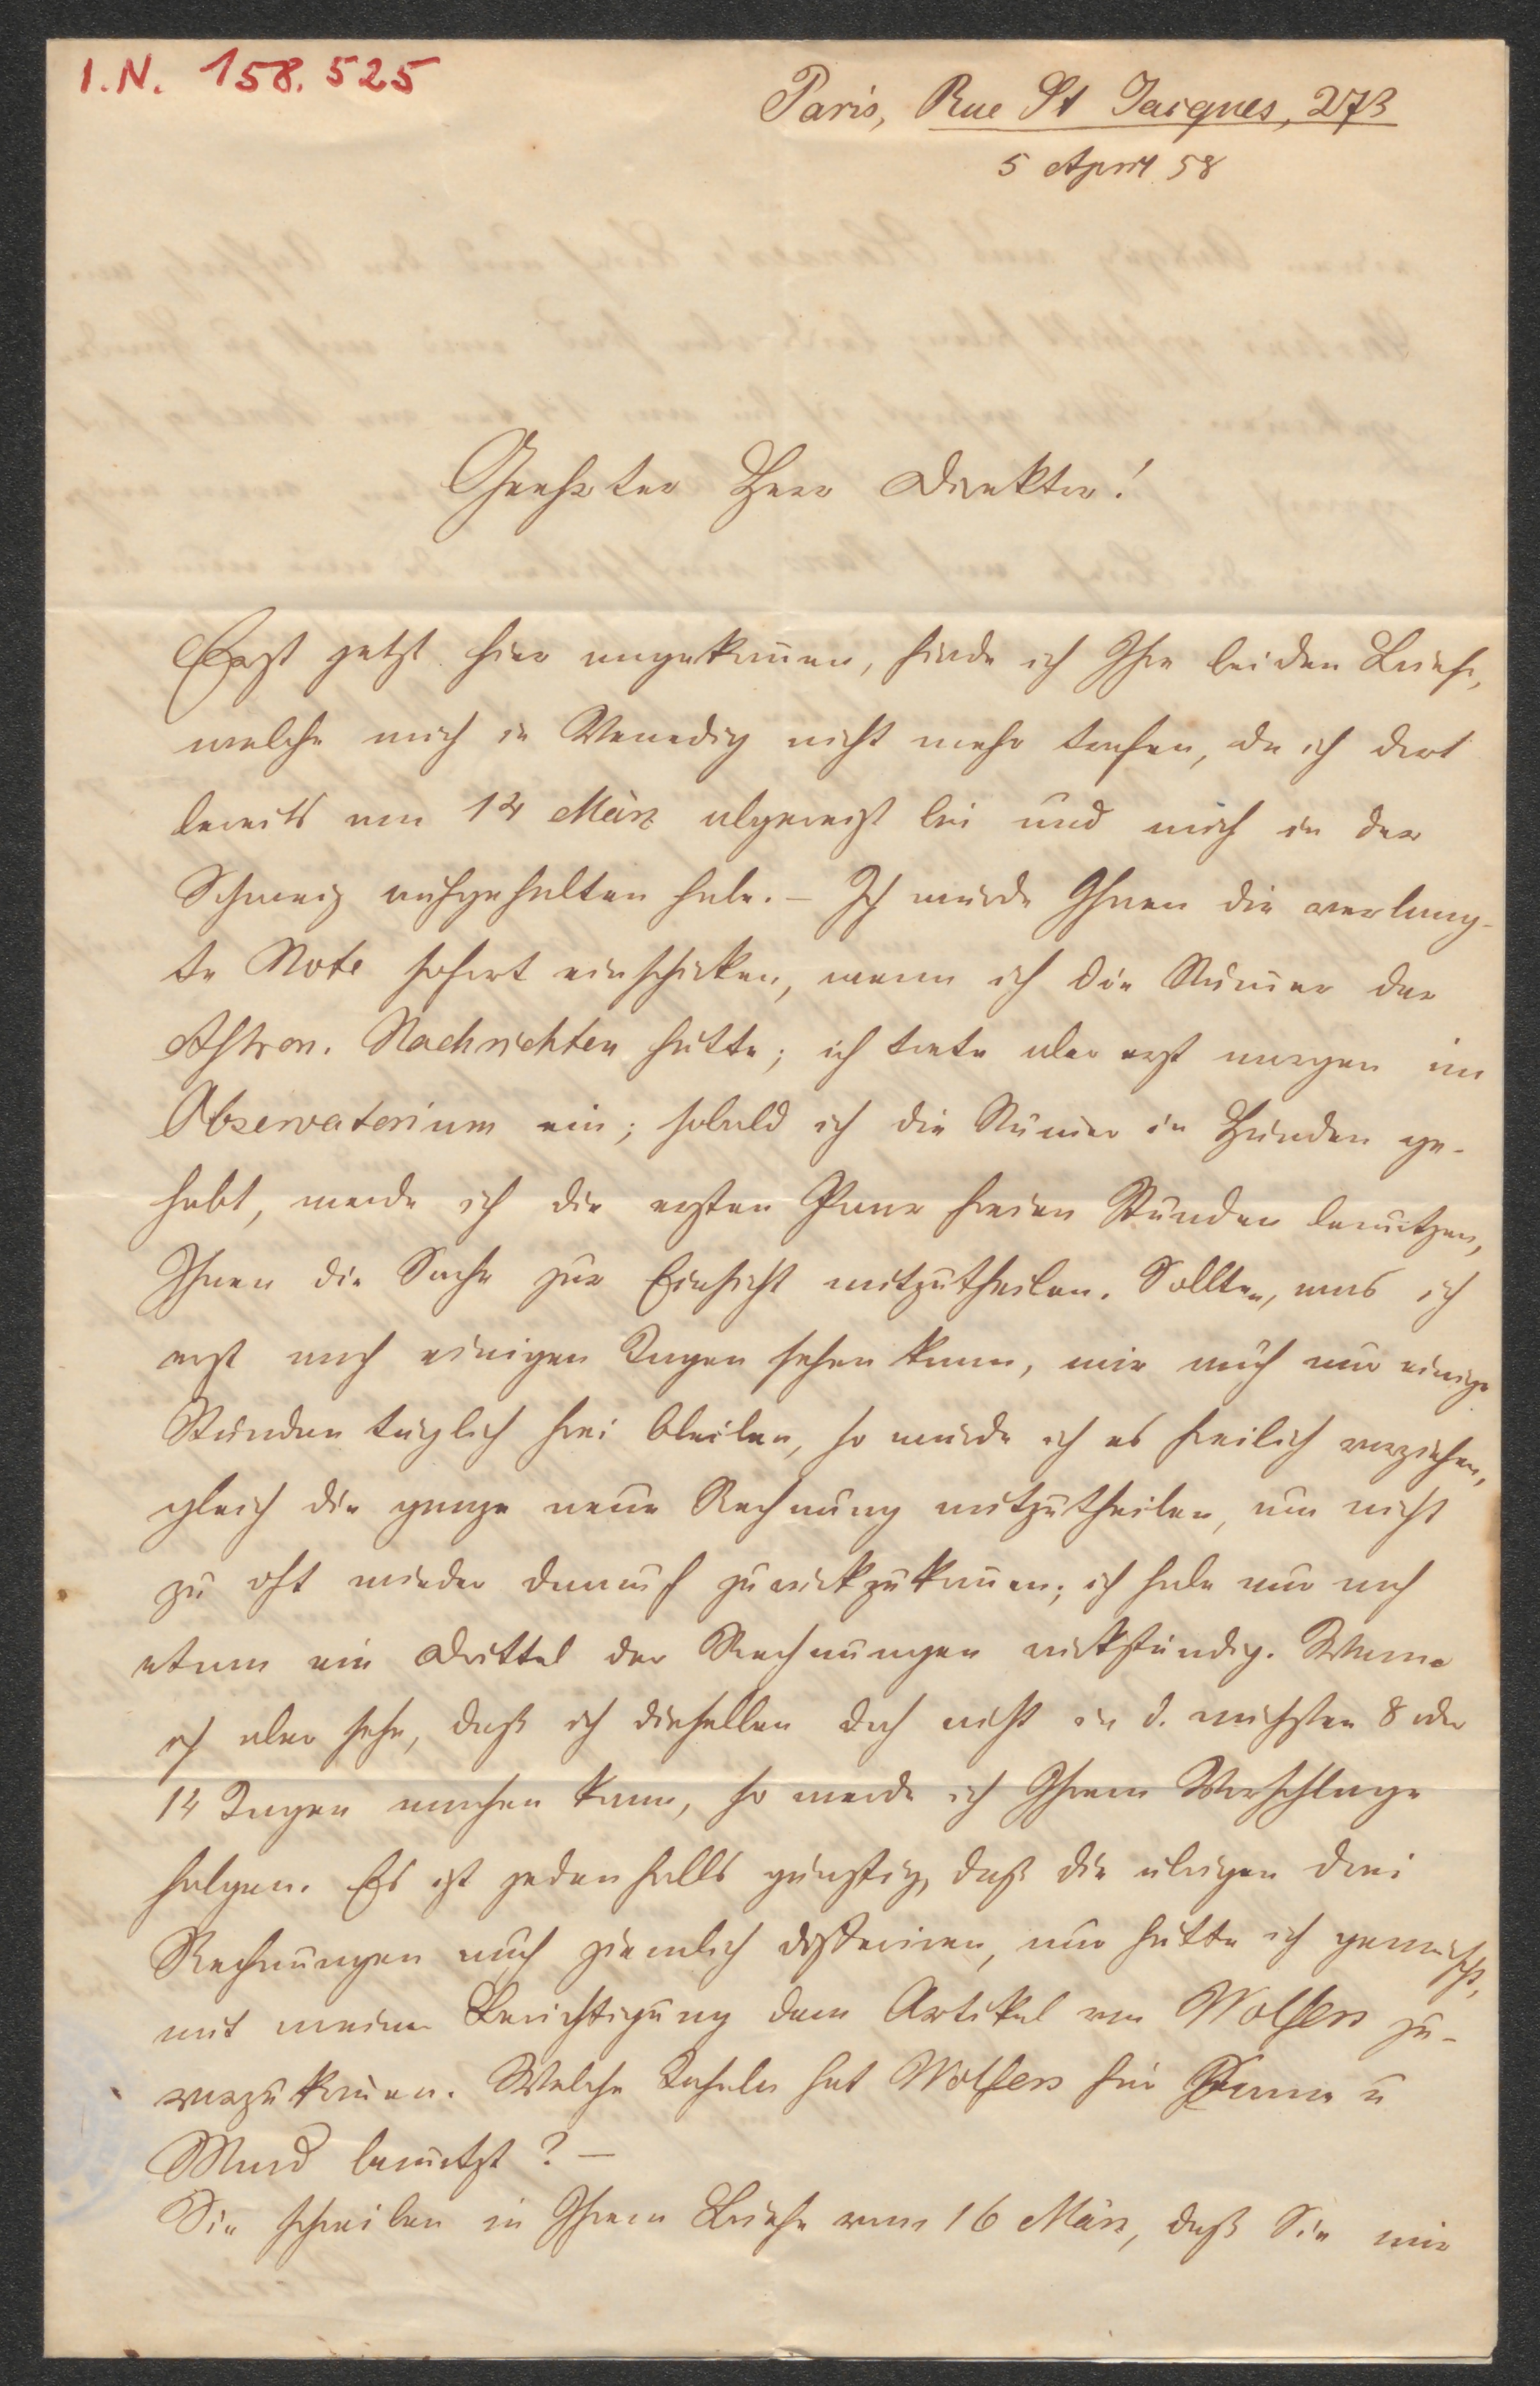 I.N. 158.525
Paris, Rue St Jacques, 273
5 April 58
Geehrter Herr Direktor!
Erst jetzt hier angekommen, finde ich Ihre beiden Briefe,
welche mich in Venedig nicht mehr trafen, da ich dort
bereits am 14 März abgereist bin und mich in der
Schweiz aufgehalten habe. – Ich würde Ihnen die verlang-
te Note sofort einschicken, wenn ich die Nummer der
Astron. Nachrichten hätte; ich trete aber erst morgen im
Observatorium ein; sobald ich die Nummer in Händen ge-
habt, werde ich die ersten Paar freien Stunden benutzen,
Ihnen die Sache zur Einsicht mitzutheilen. Sollten, was ich
erst nach einigen Tagen sehen kann, mir auch nur einige
Stunden täglich frei bleiben, so würde ich es freilich vorziehen,
gleich die ganze neue Rechnung mitzutheilen, um nicht
zu oft wieder darauf zurückzukommen; ich habe nur noch
etwa ein Drittel der Rechnungen rückständig. Wenn
ich aber sehe, daß ich dieselben doch nicht in d. nächsten 8 oder
14 Tagen machen kann, so werde ich Ihrem Vorschlage
folgen. Es ist jedenfalls günstig, daß die übrigen drei
Rechnungen auch ziemlich differiren, nur hätte ich gewünscht,
mit meiner Berichtigung dem Artikel von Wolfers zu-
vorzukommen. Welche Tafeln hat Wolfers für Sonne u
Mond benutzt? –
Sie schreiben in Ihrem Briefe vom 16 März, daß Sie mir